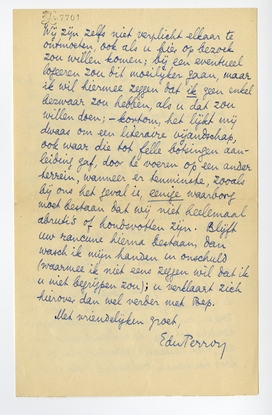 Wij zijn zelfs niet verplicht elkaar te
ontmoeten, ook als u hier op bezoek
zou willen komen; bij een eventueel
logeeren zou dit moeilijker gaan, maar
ik wil hiermee zeggen dat ik geen enkel
bezwaar zou hebben, als u dat zou
willen doen; - kortom, het lijkt mij
dwaas om een literaire vijandschap,
ook waar die tot felle botsingen aan-
leiding gaf, door te voeren op een ander
terrein, wanneer er tenminste, zooals
bij ons het geval is, eenige waarborg
moet bestaan dat wij niet heelemaal
abrutis of hondsvotten zijn. Blijft
uw rancune hierna bestaan, dan
wasch ik mijn handen in onschuld
(waarmee ik niet eens zeggen wil dat ik
u niet begrijpen zou); u verklaart zich
hierover dan wel verder met Bep.
Met vriendelijken groet,
EduPerron